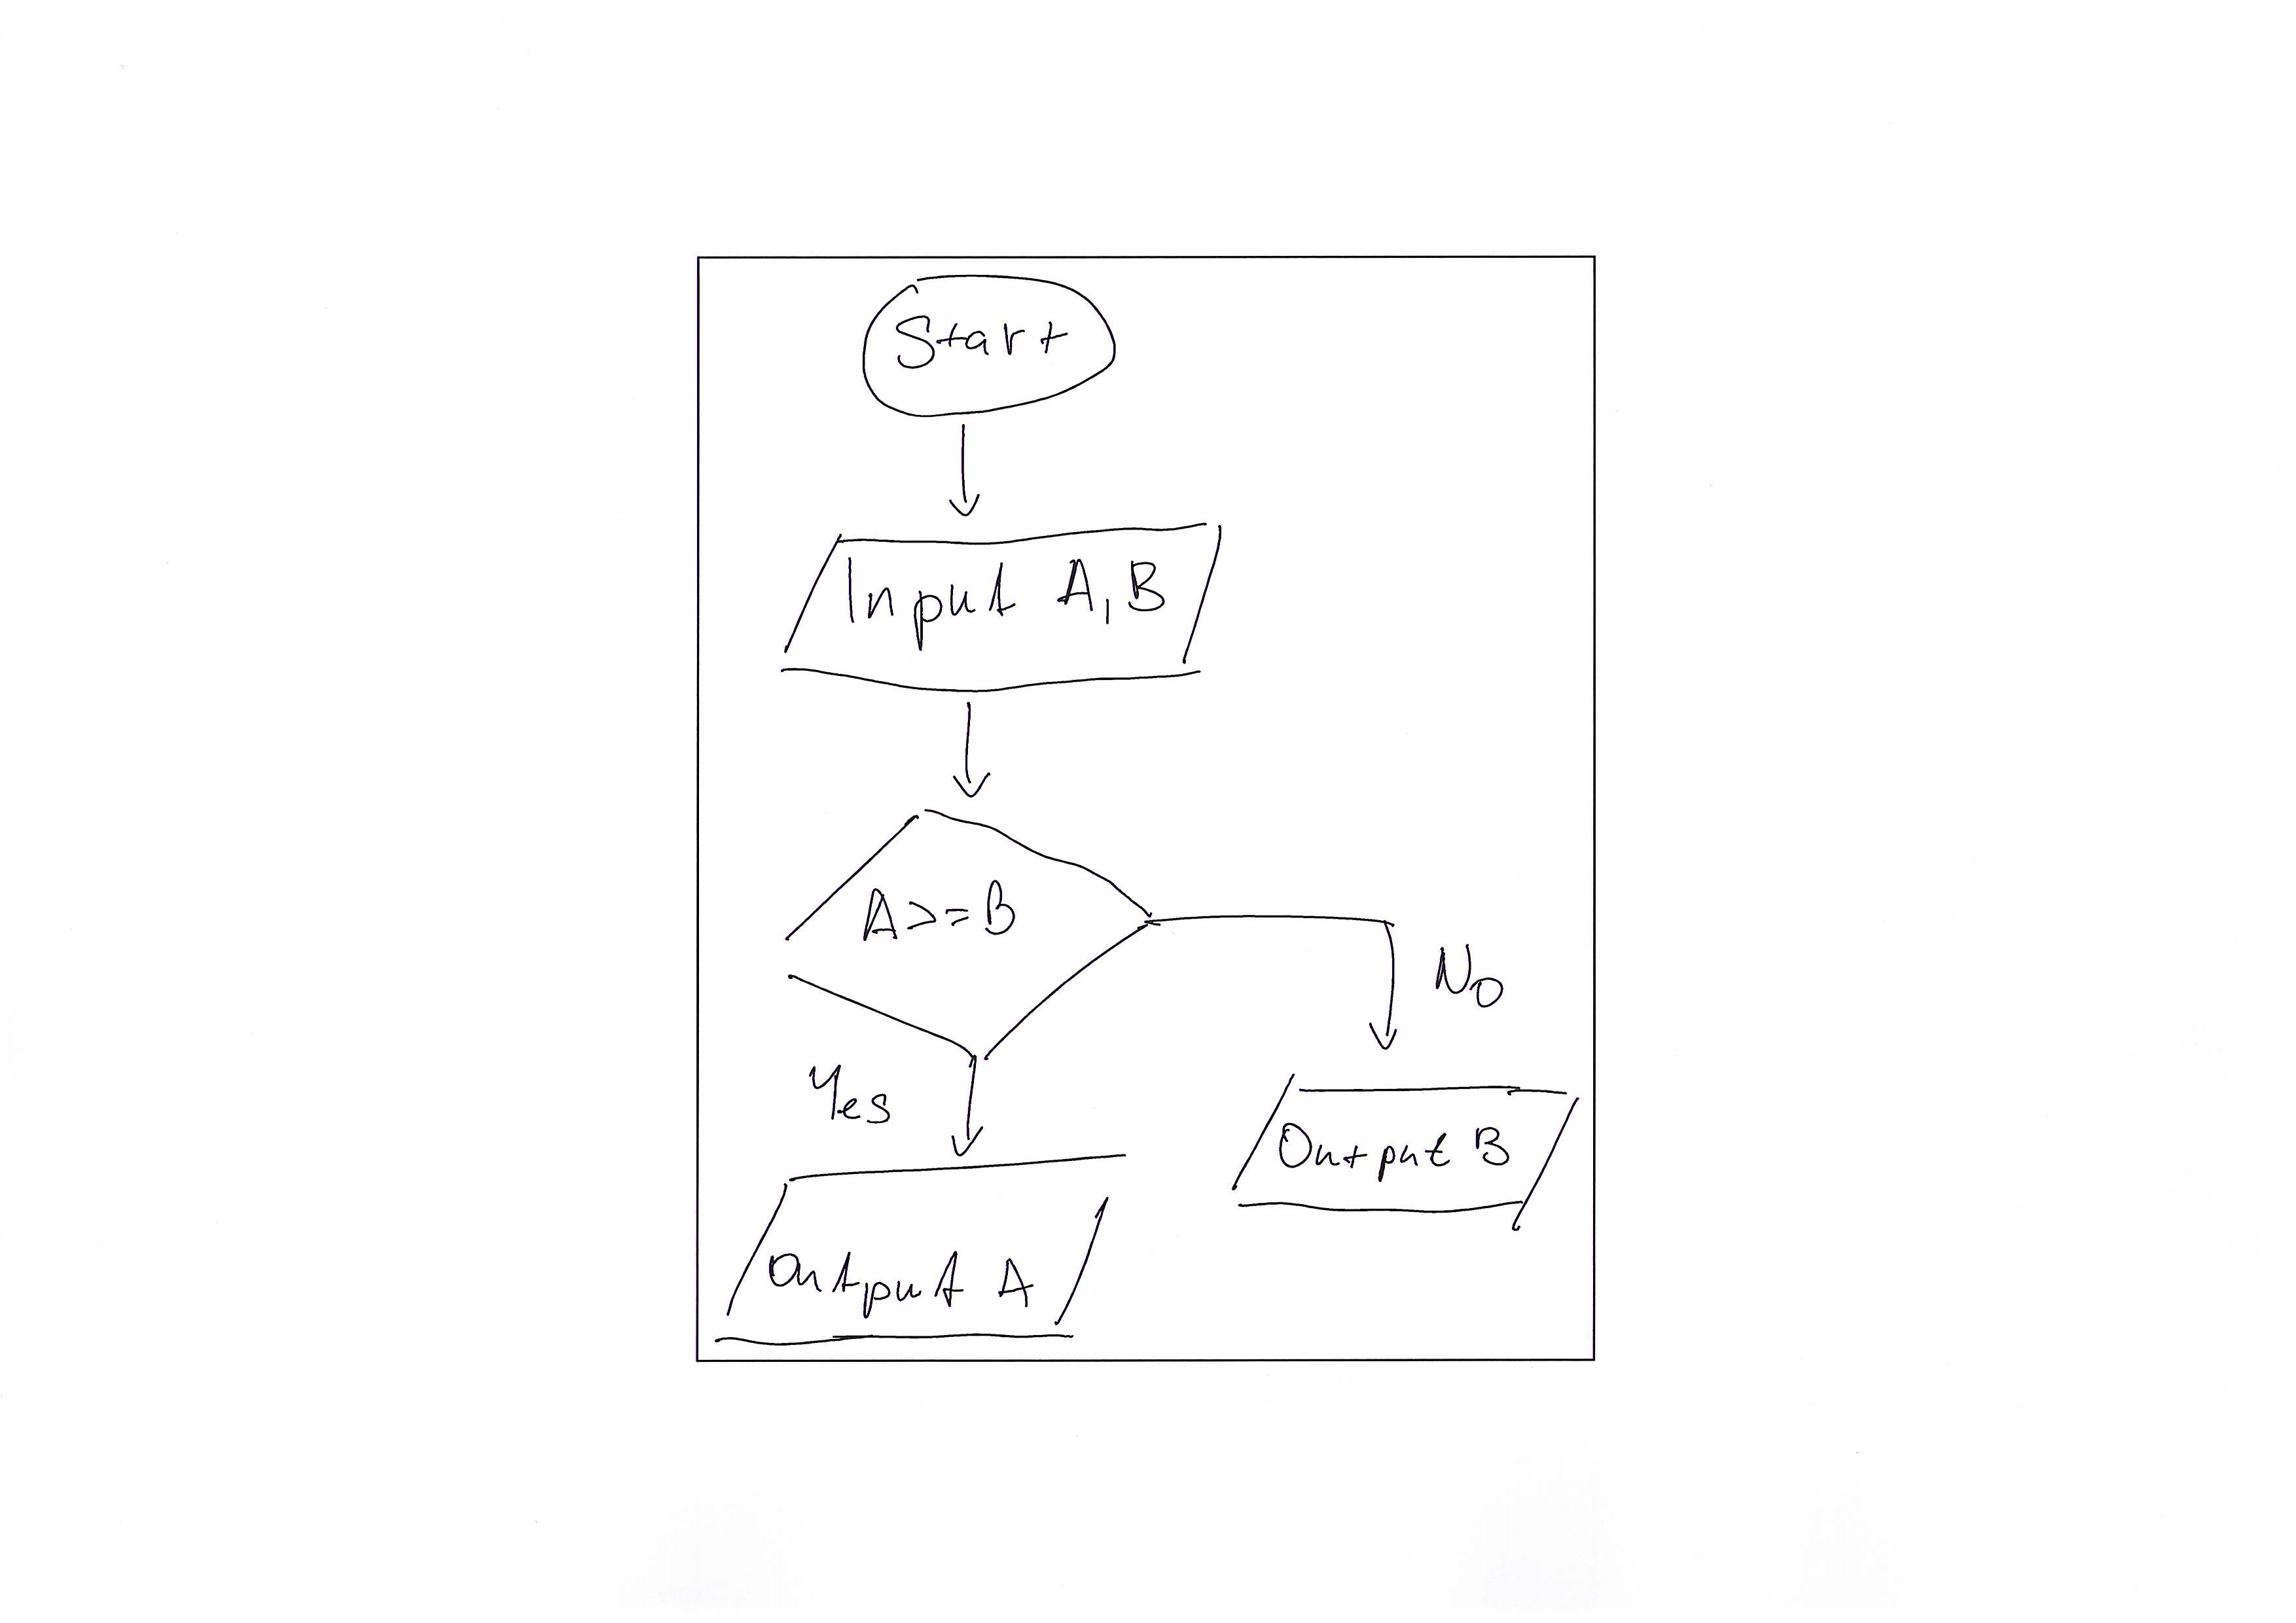 Start
Input A, B
A>=B
No
Yes
Output B
Output A